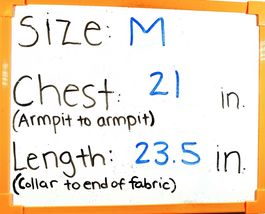 Size: M
Chest: 21 in.
(Armpit to armpit)
Length: 23.5 in.
(Collar to end of fabric)